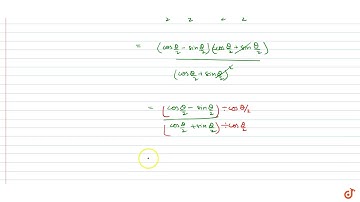 2 2 2 2
= (cos θ/2 - sin θ/2) (cos θ/2 + sin θ/2)
(cos θ/2 + sin θ/2)²
= (cos θ/2 - sin θ/2) ÷ cos θ/2
(cos θ/2 + sin θ/2) ÷ cos θ/2